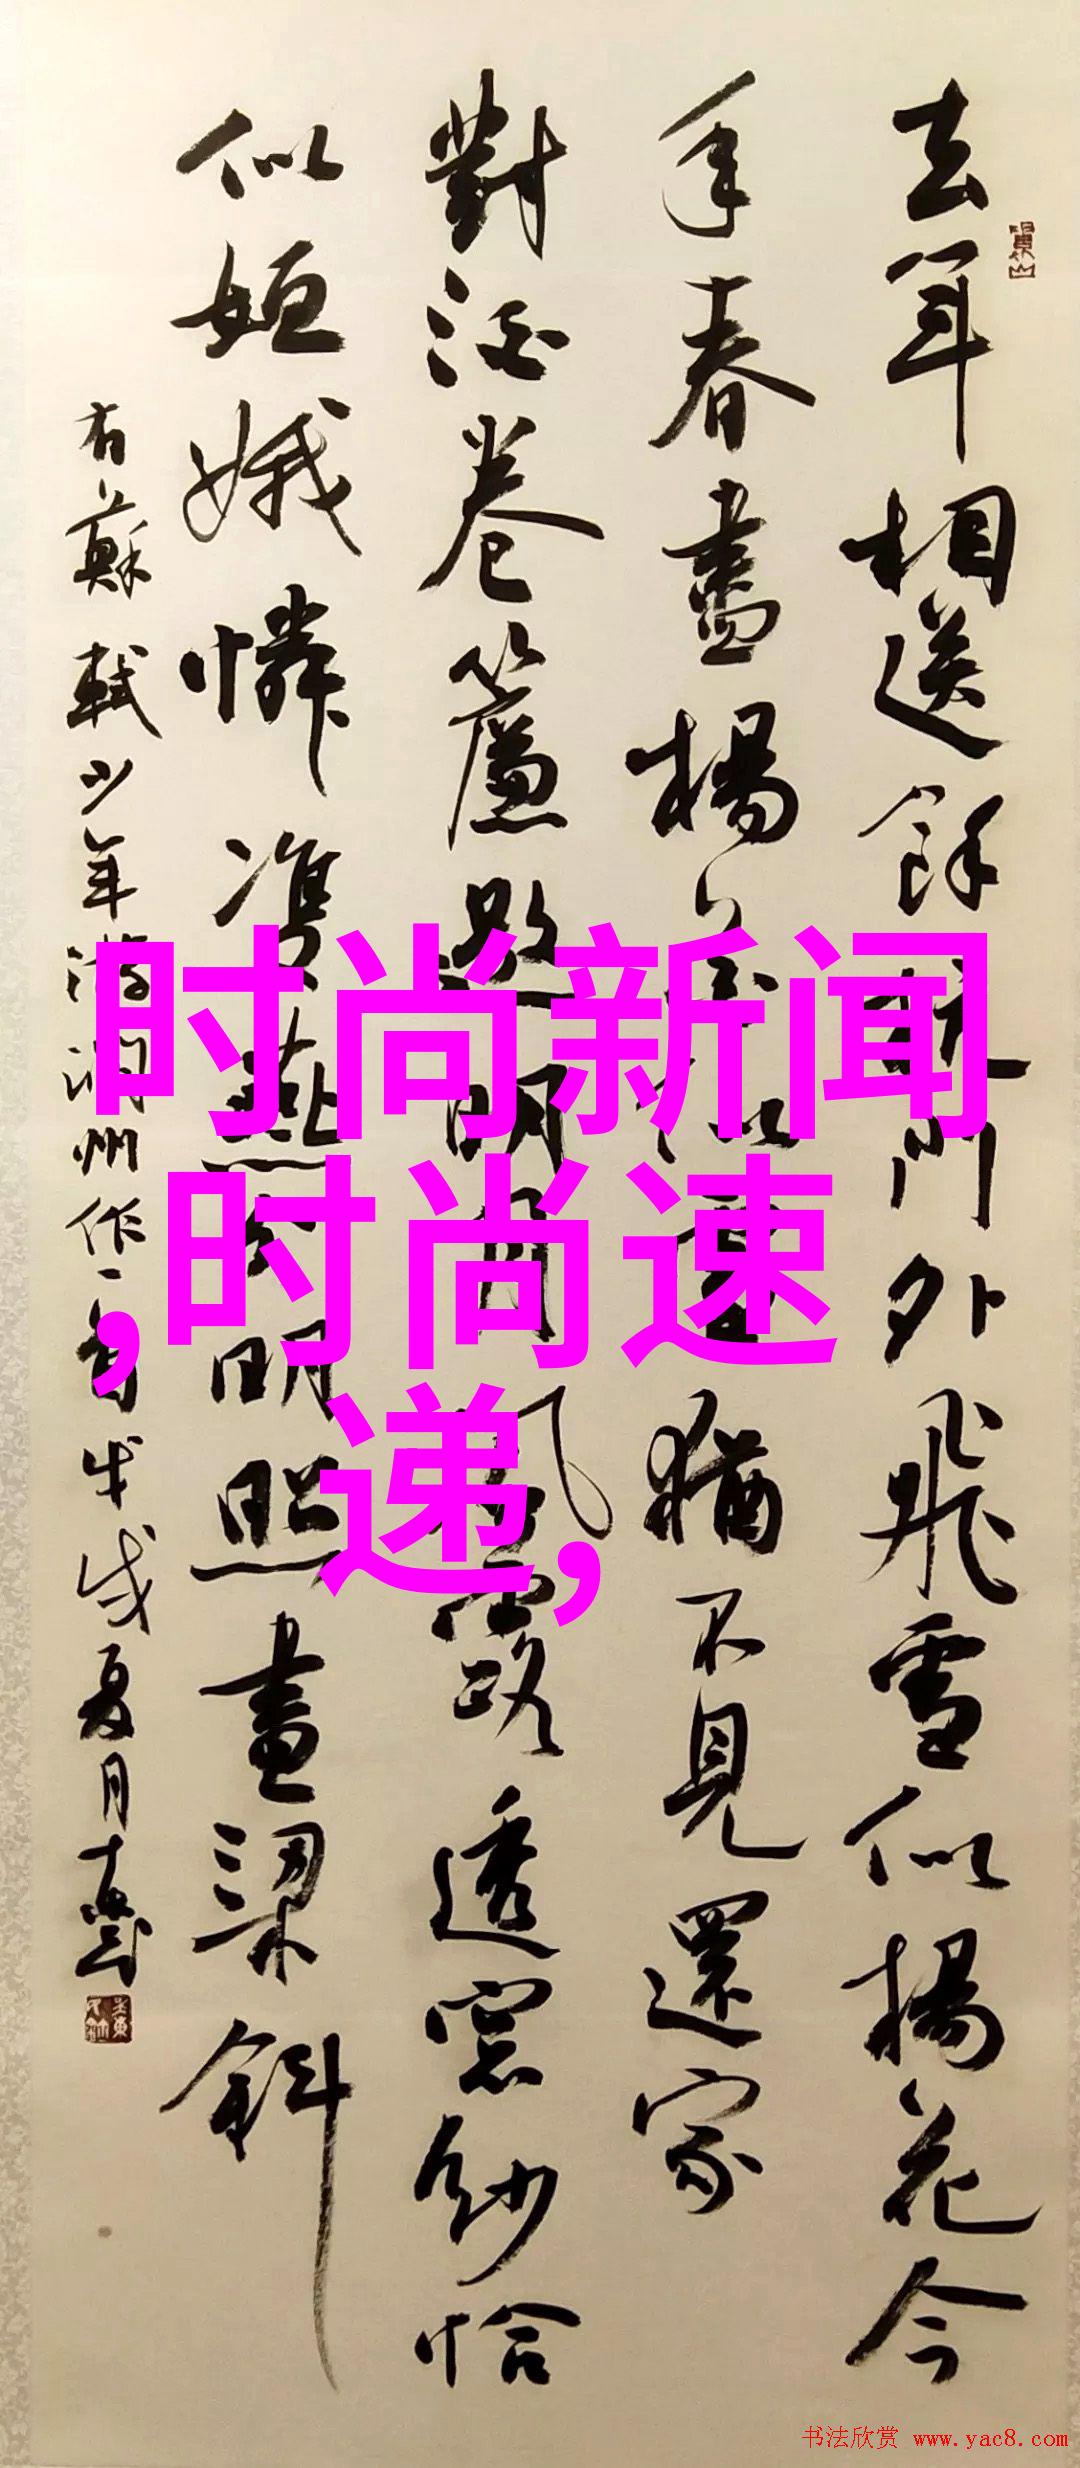 去年相送餘杭門外飛雪似楊花今
年春盡楊花似雪猶不見還家
對酒卷簾邀明月風露透窗紗恰
似姮娥憐雙燕分明照畫梁斜
右蘇軾少年游潤州作一首戊戌夏月
时尚新闻
,时尚速
递,
书法欣赏 www.yac8.com